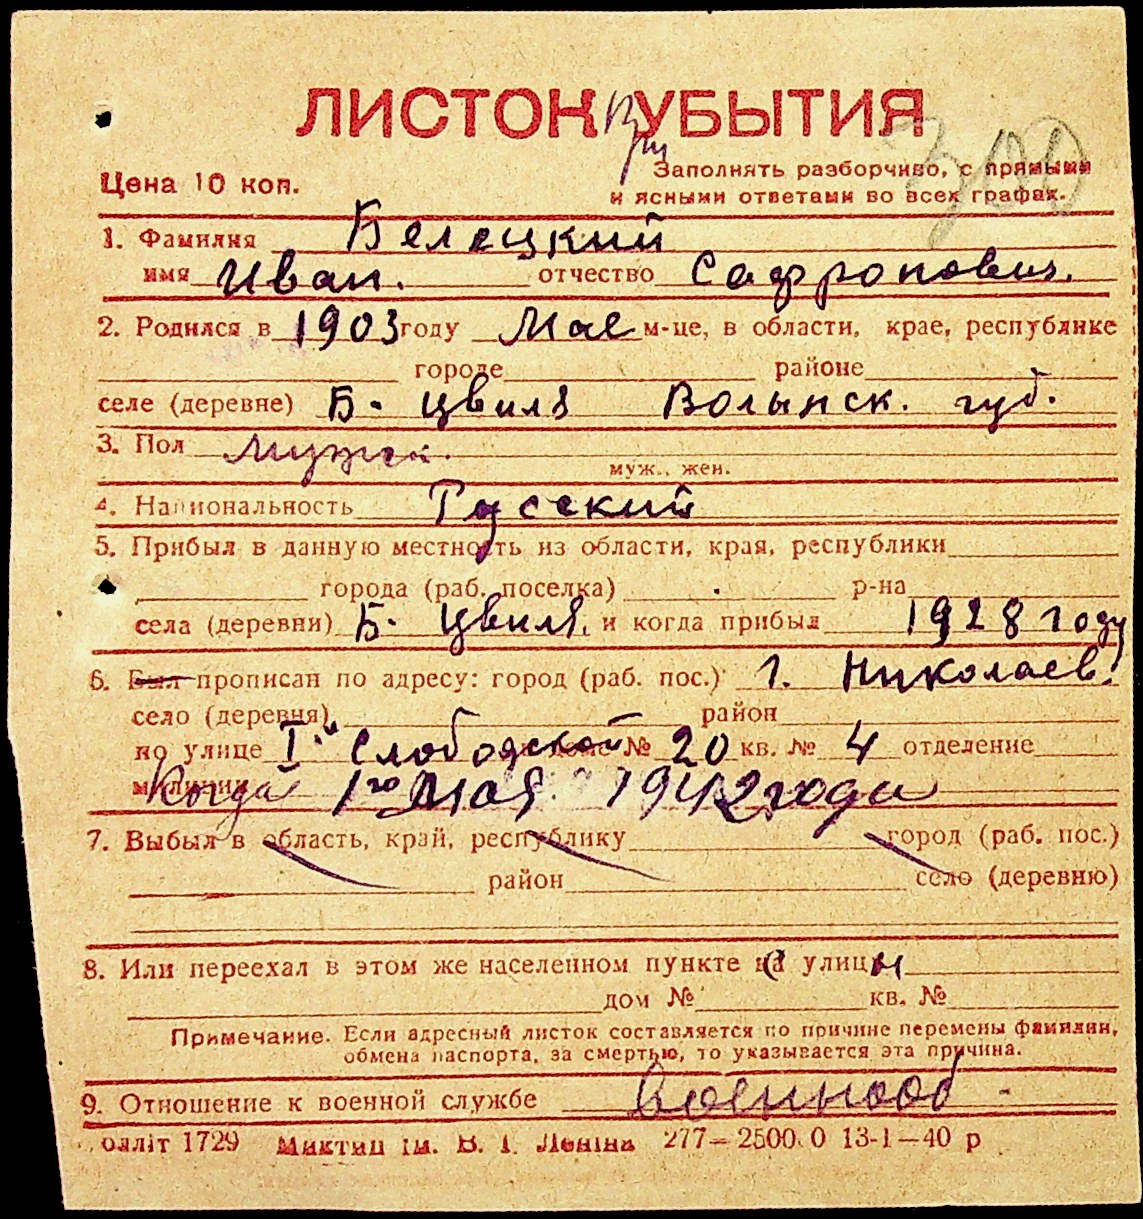 ЛИСТОК УБЫТИЯ
300
Цена 10 коп.
Заполнять разборчиво, с прямыми
и ясными ответами во всех графах.
1. Фамилия Белецкий
имя Иван. отчество Сафронович.
2. Родился в 1903 году Мае м-це, в области, крае, республике
городе районе
селе (деревне) Б. Цвиля Волынск. губ.
3. Пол Мужск.
муж., жен.
4. Национальность Русский
5. Прибыл в данную местность из области, края, республики
города (раб. поселка) р-на
села (деревни) Б. Цвиля, и когда прибыл 1928 году
6. Был прописан по адресу: город (раб. пос.) г. Николаев.
село (деревня) район
по улице I. Слободской № 20 кв. № 4 отделение
милиции Когда 1го Мая 1942 года
7. Выбыл в область, край, республику город (раб. пос.)
район село (деревню)
8. Или переехал в этом же населенном пункте с улицы
дом № кв. №
Примечание. Если адресный листок составляется по причине перемены фамилии,
обмена паспорта, за смертью, то указывается эта причина.
9. Отношение к военной службе Военнооб
олліт 1729 Миктип ім. В. І. Леніна 277—2500.0 13-1—40 р